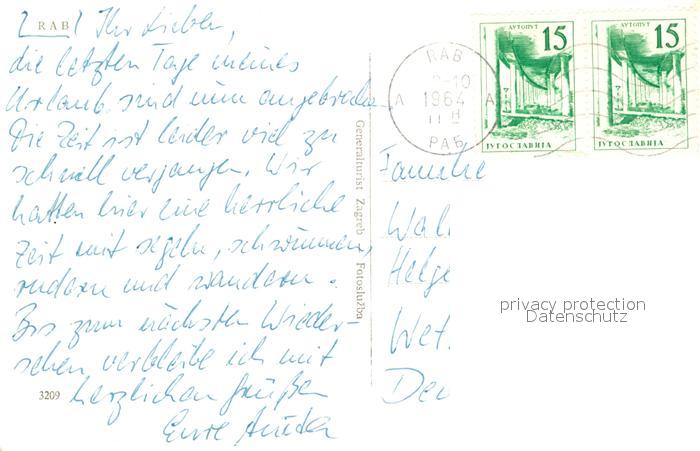 RAB
Ihr Lieben,
die letzten Tage meines
Urlaub sind nun angebrochen
Die Zeit ist leider viel zu
schnell vergangen. Wir
hatten hier eine herrliche
Zeit mit segeln, schwimmen,
rudern und wandern.
Bis zum nächsten Wieder-
sehen verbleibe ich mit
3209 herzlichen Grüßen
Eure
Generalturist Zagreb Fotoslužba
RAB
1964
РАБ
A A
АУТОПУТ 15
ЈУГОСЛАВИЈА
АУТОПУТ 15
ЈУГОСЛАВИЈА
Familie
Wal
Helge
Wet.
Deu
privacy protection
Datenschutz